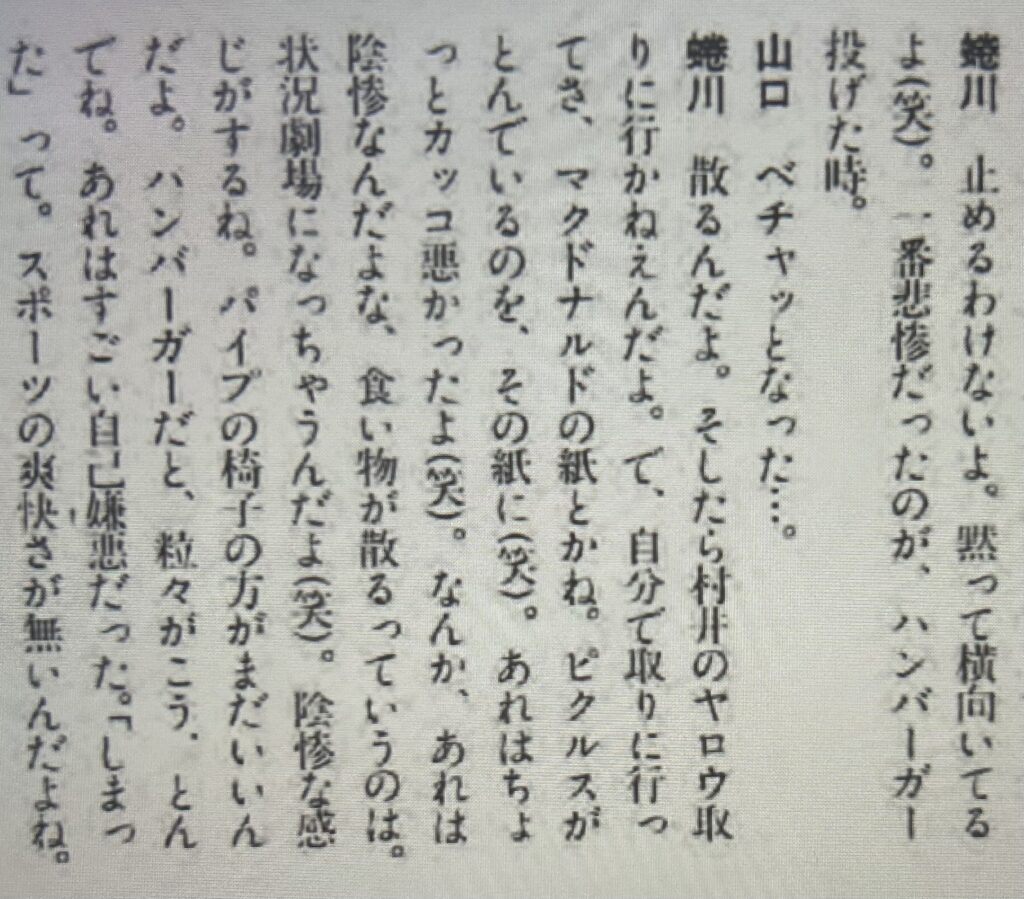 蜷川　止めるわけないよ。黙って横向いてる
よ(笑)。一番悲惨だったのが、ハンバーガー
投げた時。
山口　ベチャッとなった…。
蜷川　散るんだよ。そしたら村井のヤロウ取
りに行かねぇんだよ。で、自分で取りに行っ
てさ、マクドナルドの紙とかね。ピクルスが
とんでいるのを、その紙に(笑)。あれはちょ
っとカッコ悪かったよ(笑)。なんか、あれは
陰惨なんだよな、食い物が散るっていうのは。
状況劇場になっちゃうんだよ(笑)。陰惨な感
じがするね。パイプの椅子の方がまだいいん
だよ。ハンバーガーだと、粒々がこう、とん
でね。あれはすごい自己嫌悪だった。「しまっ
た」って。スポーツの爽快さが無いんだよね。